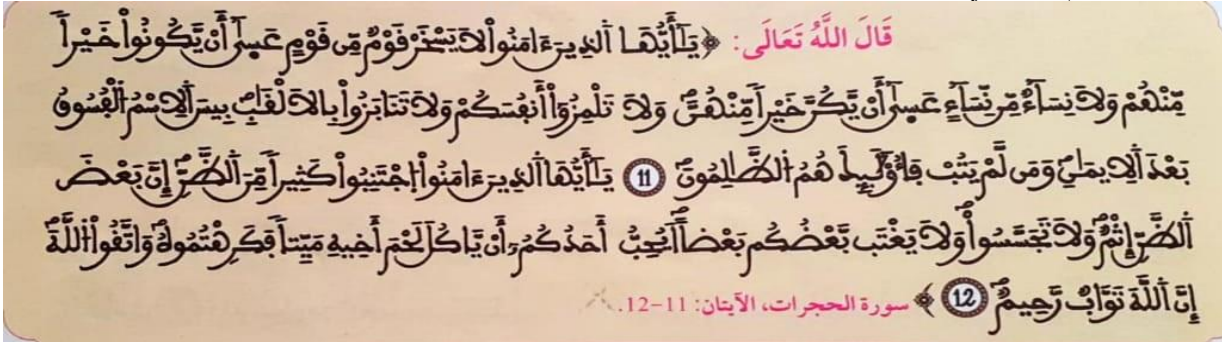 قَالَ اللَّهُ تَعَالَى: ﴿يَٰٓأَيُّهَا اَ۬لذِينَ ءَامَنُواْ لَا يَسْخَرْ قَوْمٞ مِّن قَوْمٍ عَسَىٰٓ أَنْ يَّكُونُواْ خَيْراٗ
مِّنْهُمْ وَلَا نِسَآءٞ مِّن نِّسَآءٍ عَسَىٰٓ أَنْ يَّكُنَّ خَيْراٗ مِّنْهُنَّۖ وَلَا تَلْمِزُوٓاْ أَنفُسَكُمْ وَلَا تَنَابَزُواْ بِالَالْقَٰبِۖ بِيسَ اَ۬لِاسْمُ اُ۬لْفُسُوقُ
بَعْدَ اَ۬لِايمَٰنِۖ وَمَن لَّمْ يَتُبْ فَأُوْلَٰٓئِكَ هُمُ اُ۬لظَّٰلِمُونَۖ 11 يَٰٓأَيُّهَا اَ۬لذِينَ ءَامَنُواْ اُ۪جْتَنِبُواْ كَثِيراٗ مِّنَ اَ۬لظَّنِّ إِنَّ بَعْضَ
اَ۬لظَّنِّ إِثْمٞۖ وَلَا تَجَسَّسُواْۖ وَلَا يَغْتَب بَّعْضُكُم بَعْضاًۖ اَيُحِبُّ أَحَدُكُمُۥٓ أَنْ يَّاكُلَ لَحْمَ أَخِيهِ مَيِّتاٗ فَكَرِهْتُمُوهُۖ وَاتَّقُواْ اُ۬للَّهَۖ
إِنَّ اَ۬للَّهَ تَوَّابٞ رَّحِيمٞۖ 12﴾ سورة الحجرات، الآيتان: 11-12.